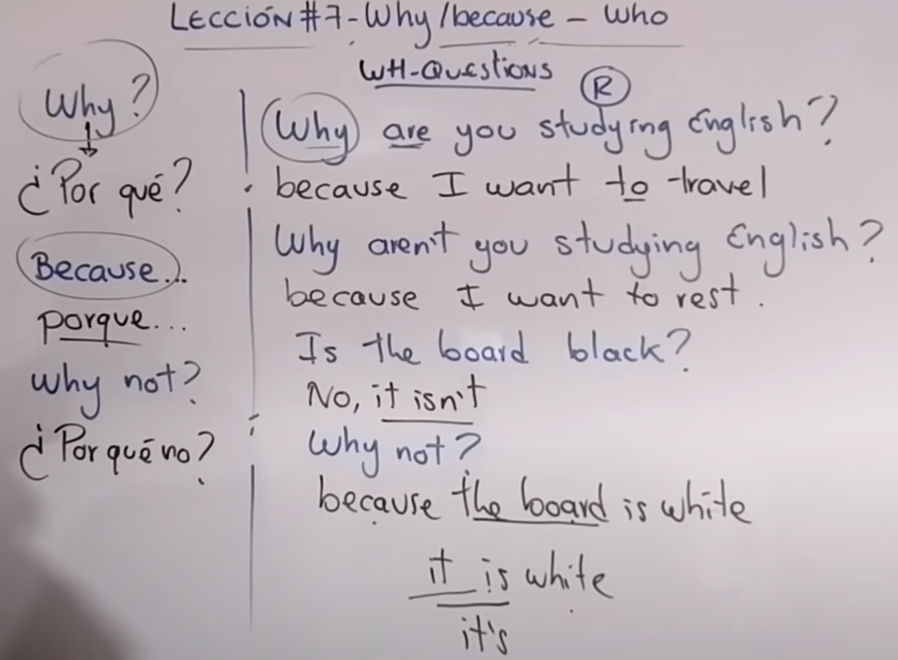 LECCIÓN #7-Why/because - Who
WH-QUESTIONS
Why?
¿Por qué?
Because...
porque...
why not?
¿Por qué no?
R
Why are you studying English?
because I want to travel
Why aren't you studying English?
because I want to rest.
Is the board black?
No, it isn't
Why not?
because the board is white
it is white
it's